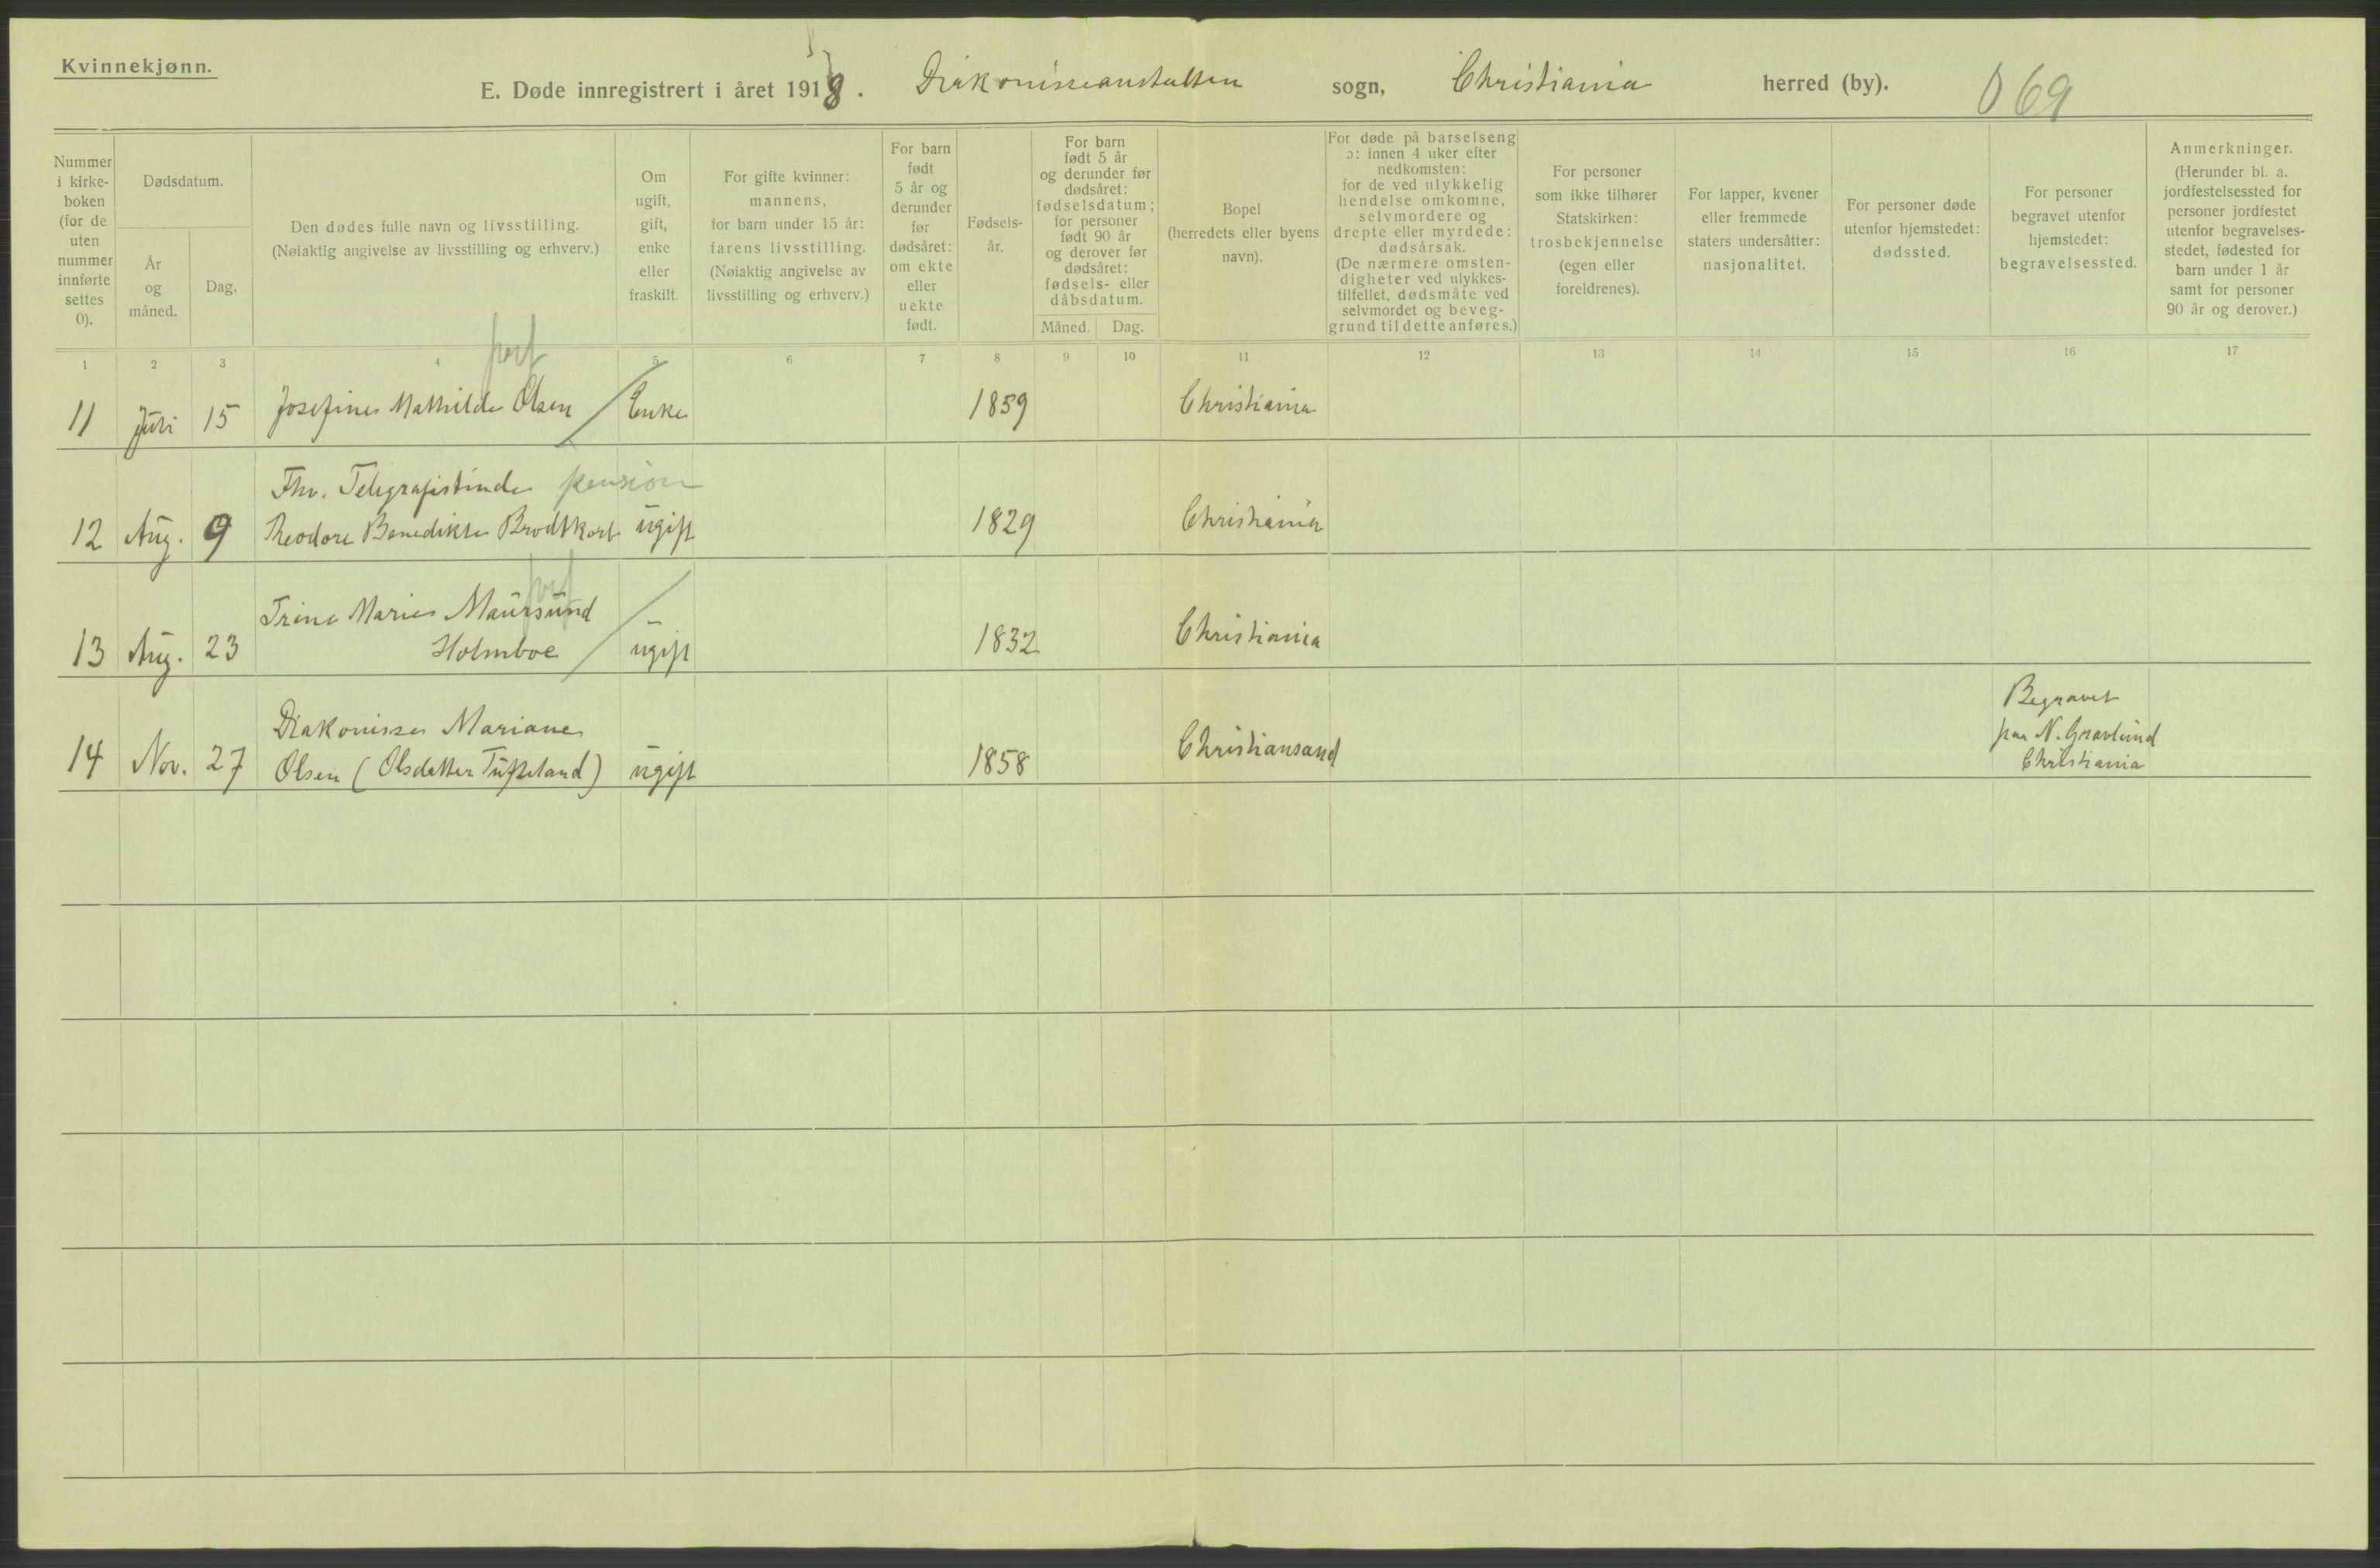 Kvinnekjønn.
E. Døde innregistrert i året 1918. Diakonisseanstalten sogn, Christiania herred (by). 069
Nummer i kirke-boken (for de uten nummer innførte settes 0).
Dødsdatum.
År og måned.
Dag.
Den dødes fulle navn og livsstilling.
(Nøiaktig angivelse av livsstilling og erhverv.)
Om ugift, gift, enke eller fraskilt.
For gifte kvinner: mannens, for barn under 15 år: farens livsstilling. (Nøiaktig angivelse av livsstilling og erhverv.)
For barn født 5 år og derunder før dødsåret: om ekte eller uekte født.
Fødsels-år.
For barn født 5 år og derunder før dødsåret: fødselsdatum; for personer født 90 år og derover før dødsåret: fødsels- eller dåbsdatum.
Måned. Dag.
Bopel (herredets eller byens navn).
For døde på barselseng ɔ: innen 4 uker efter nedkomsten: for de ved ulykkelig hendelse omkomne, selvmordere og drepte eller myrdede: dødsårsak. (De nærmere omsten-digheter ved ulykkes-tilfellet, dødsmåte ved selvmordet og beveg-grund til dette anføres.)
For personer som ikke tilhører Statskirken: trosbekjennelse (egen eller foreldrenes).
For lapper, kvener eller fremmede staters undersåtter: nasjonalitet.
For personer døde utenfor hjemstedet: dødssted.
For personer begravet utenfor hjemstedet: begravelsessted.
Anmerkninger. (Herunder bl. a. jordfestelsessted for personer jordfestet utenfor begravelses-stedet, fødested for barn under 1 år samt for personer 90 år og derover.)
1 2 3 4 5 6 7 8 9 10 11 12 13 14 15 16 17
11 Juli 15 Josefine Mathilde Olsen Enke 1859 Christiania
Fhv. Telegrafistinde pension
12 Aug. 9 Theodore Benedikte Brodtkorb ugift 1829 Christiania
Trine Marie Maursund
13 Aug. 23 Holmboe ugift 1832 Christiania
Diakonisse Mariane
14 Nov. 27 Olsen (Olsdatter Tufteland) ugift 1858 Christiansand
Begravet
paa N. Gravlund
Christiania